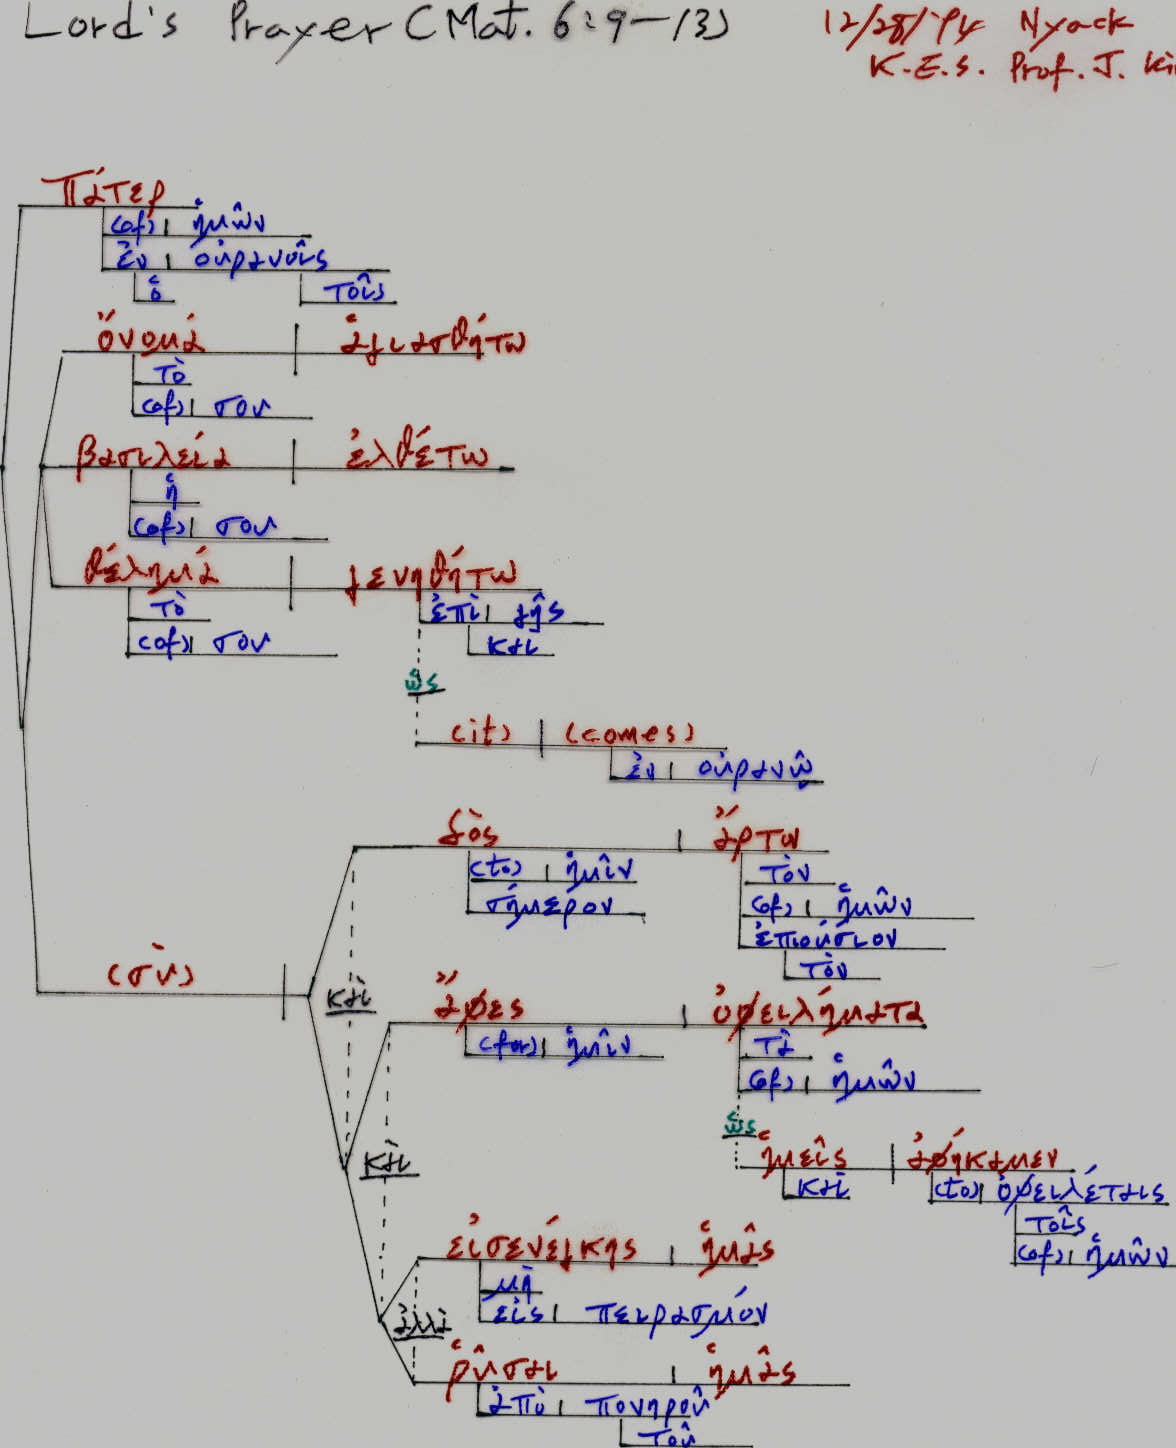 Lord's Prayer (Mat. 6:9-13)
12/28/'94 Nyack
K.E.S. Prof. J.
Πάτερ
(of) ἡμῶν
ἐν οὐρανοῖς
ὁ τοῖς
ὄνομά ἁγιασθήτω
τὸ
(of) σου
βασιλεία ἐλθέτω
ἡ
(of) σου
θέλημά γενηθήτω
τὸ ἐπὶ γῆς
(of) σου και
ὡς
(it) (comes)
ἐν οὐρανῷ
δὸς ἄρτω
(to) ἡμῖν τὸν
σήμερον (of) ἡμῶν
ἐπιούσιον
τὸν
(σὺ)
καὶ
ἄφες ὀφειλήματα
(for) ἡμῖν τὰ
(of) ἡμῶν
ὡς
καὶ
ἡμεῖς ἀφήκαμεν
καὶ (to) ὀφειλέταις
τοῖς
(of) ἡμῶν
εἰσενέγκης ἡμᾶς
μὴ
εἰς πειρασμόν
ἀλλὰ
ῥῦσαι ἡμᾶς
ἀπὸ πονηροῦ
τοῦ